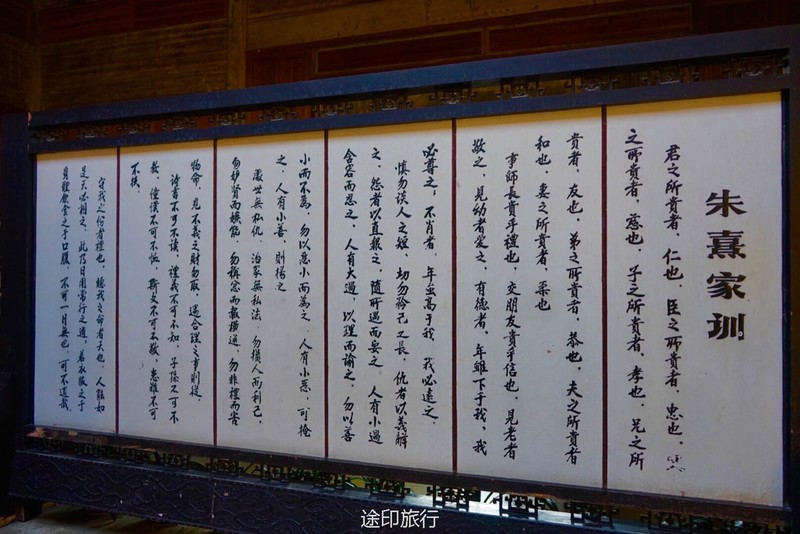 朱熹家训
君之所貴者，仁也。臣之所貴者，忠也。
之所貴者，慈也。子之所貴者，孝也。兄之所
貴者，友也。弟之所貴者，恭也。夫之所貴者
和也。妻之所貴者，柔也
事師長貴乎禮也，交朋友貴乎信也。見老者
敬之，見幼者愛之。有德者，年雖下于我，我
必尊之。不肖者，年虽高于我，我必遠之。
慎勿談人之短，切勿矜己之長。仇者以義解
之，怨者以直報之，隨所遇而安之。人有小過
含容而忍之，人有大過，以理而諭之。勿以善
小而不為，勿以惡小而為之。人有小惡，可掩
之，人有小善，則揚之
處世無私仇，治家無私法。勿損人而利己，
勿妒賢而嫉能。勿稱忿而報橫逆，勿非禮而害
物命。見不義之財勿取，遇合理之事則從。
詩書不可不讀，禮義不可不知。子孫不可不
教，僮僕不可不恤。斯文不可不敬，患難不可
不扶。
守我之份者禮也，聽我之命者天也。人能如
是天必相之。此乃日用常行之道，若衣服之于
身體飲食之于口腹，不可一日無也，可不謹哉
途印旅行